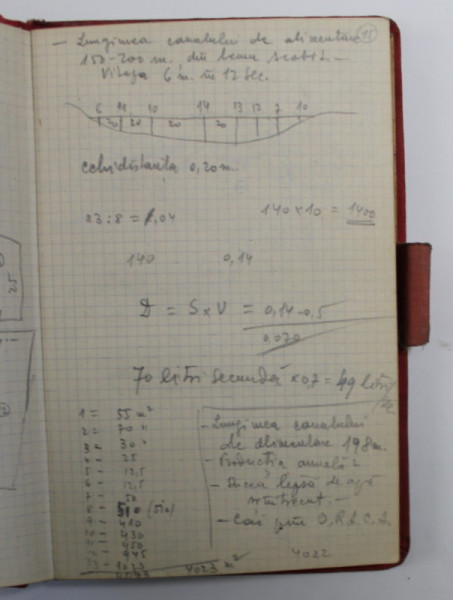 - Lungimea canalului de alimentare 15
150-200 m. din
Viteza 6 m. în 12 sec.
6 11 10 14 13 12 7 10
20 20 20 20
echidistanța 0,20 m.
83:8 = 1,04
140 x 10 = 1400
140 0,14
D = S x V = 0,14 - 0,5
0,070
70 litri secundă x 0,7 = 49 litri/
1 = 55 m²
2 = 70 "
3 = 30 "
4 - 25
5 - 12,5
6 - 12,5
7 - 50
8 - 510
9 - 410
10 - 430
11 - 450
12 - 945
13 - 1023
4023 m²
- Lungimea canalului
de alimentare 198 m.
- Producția anuală?
- Dacă lipsă de apă
- O.R.L.C.A.
4022